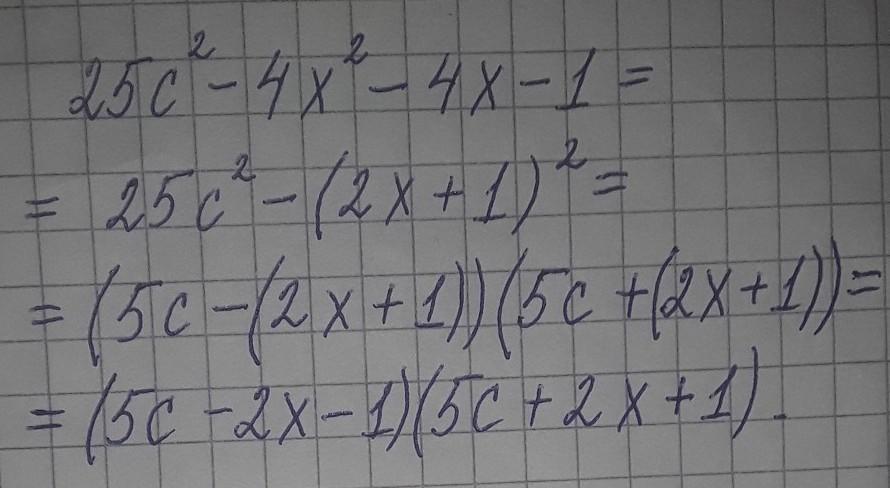 25c² - 4x² - 4x - 1 =
= 25c² - (2x + 1)² =
= (5c - (2x + 1))(5c + (2x + 1)) =
= (5c - 2x - 1)(5c + 2x + 1).